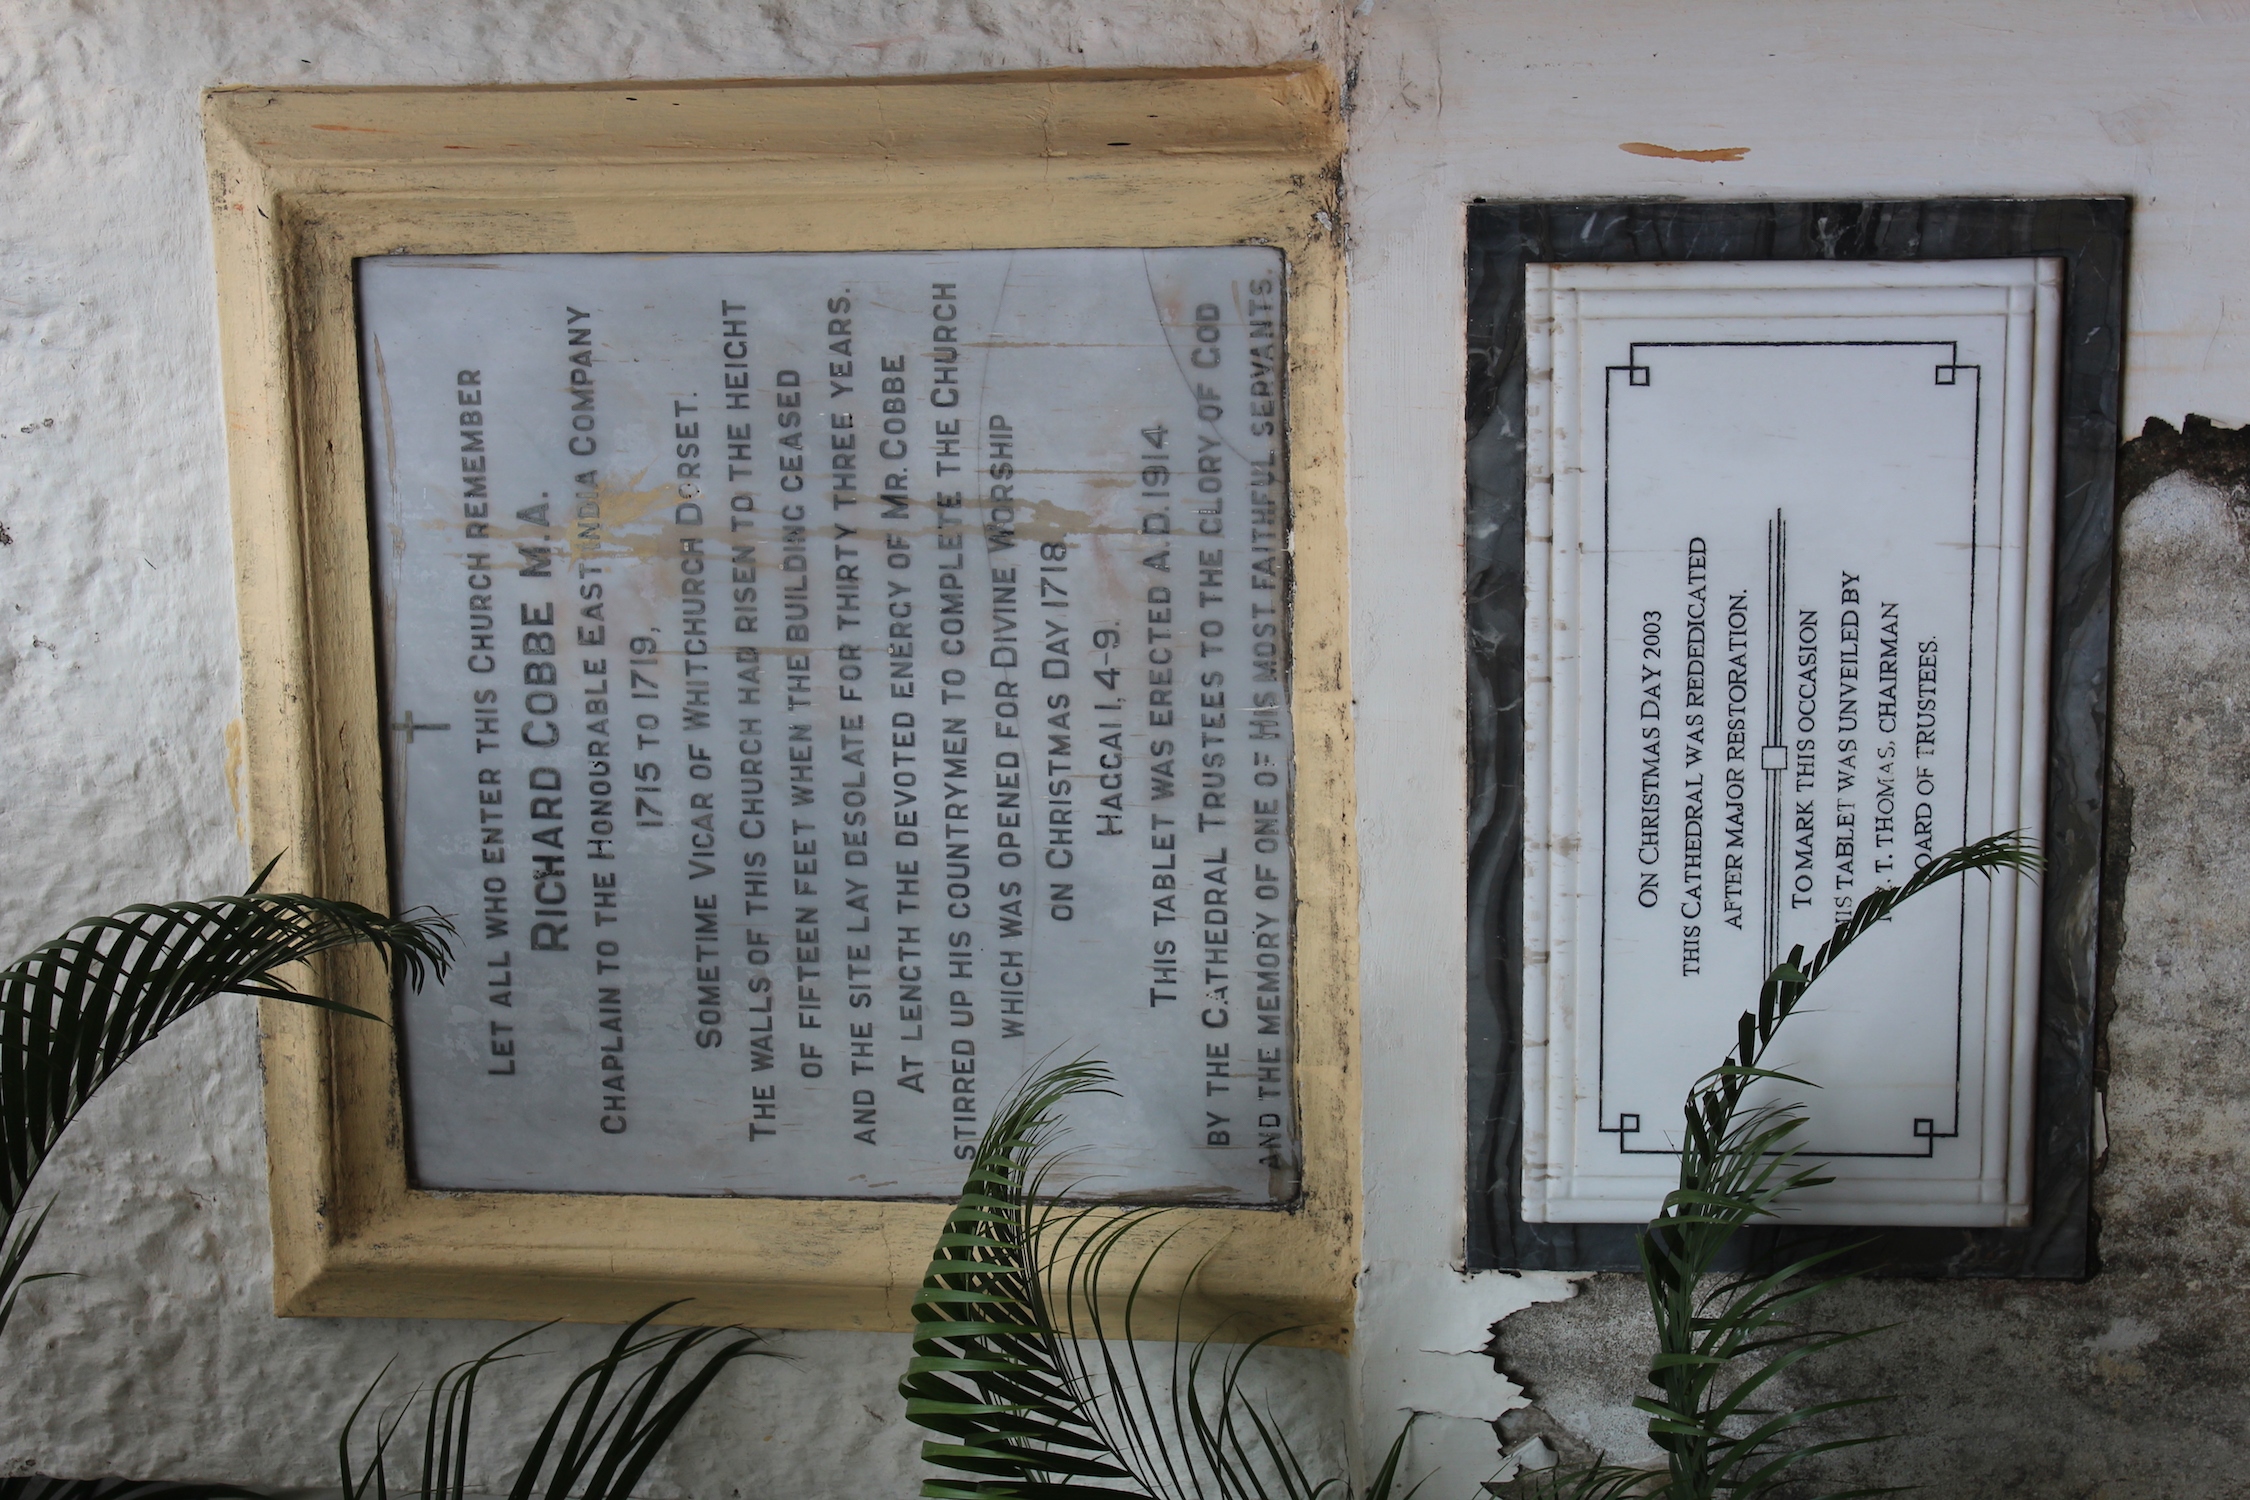 LET ALL WHO ENTER THIS CHURCH REMEMBER
RICHARD COBBE M.A.
CHAPLAIN TO THE HONOURABLE EAST INDIA COMPANY
1715 TO 1719,
SOMETIME VICAR OF WHITCHURCH DORSET.
THE WALLS OF THIS CHURCH HAD RISEN TO THE HEIGHT
OF FIFTEEN FEET WHEN THE BUILDING CEASED
AND THE SITE LAY DESOLATE FOR THIRTY THREE YEARS.
AT LENGTH THE DEVOTED ENERGY OF MR. COBBE
STIRRED UP HIS COUNTRYMEN TO COMPLETE THE CHURCH
WHICH WAS OPENED FOR DIVINE WORSHIP
ON CHRISTMAS DAY 1718.
HAGGAI 1, 4-9.
THIS TABLET WAS ERECTED A.D. 1914
BY THE CATHEDRAL TRUSTEES TO THE GLORY OF GOD
AND THE MEMORY OF ONE OF HIS MOST FAITHFUL SERVANTS.
ON CHRISTMAS DAY 2003
THIS CATHEDRAL WAS REDEDICATED
AFTER MAJOR RESTORATION.
TO MARK THIS OCCASION
THIS TABLET WAS UNVEILED BY
T. THOMAS, CHAIRMAN
BOARD OF TRUSTEES.